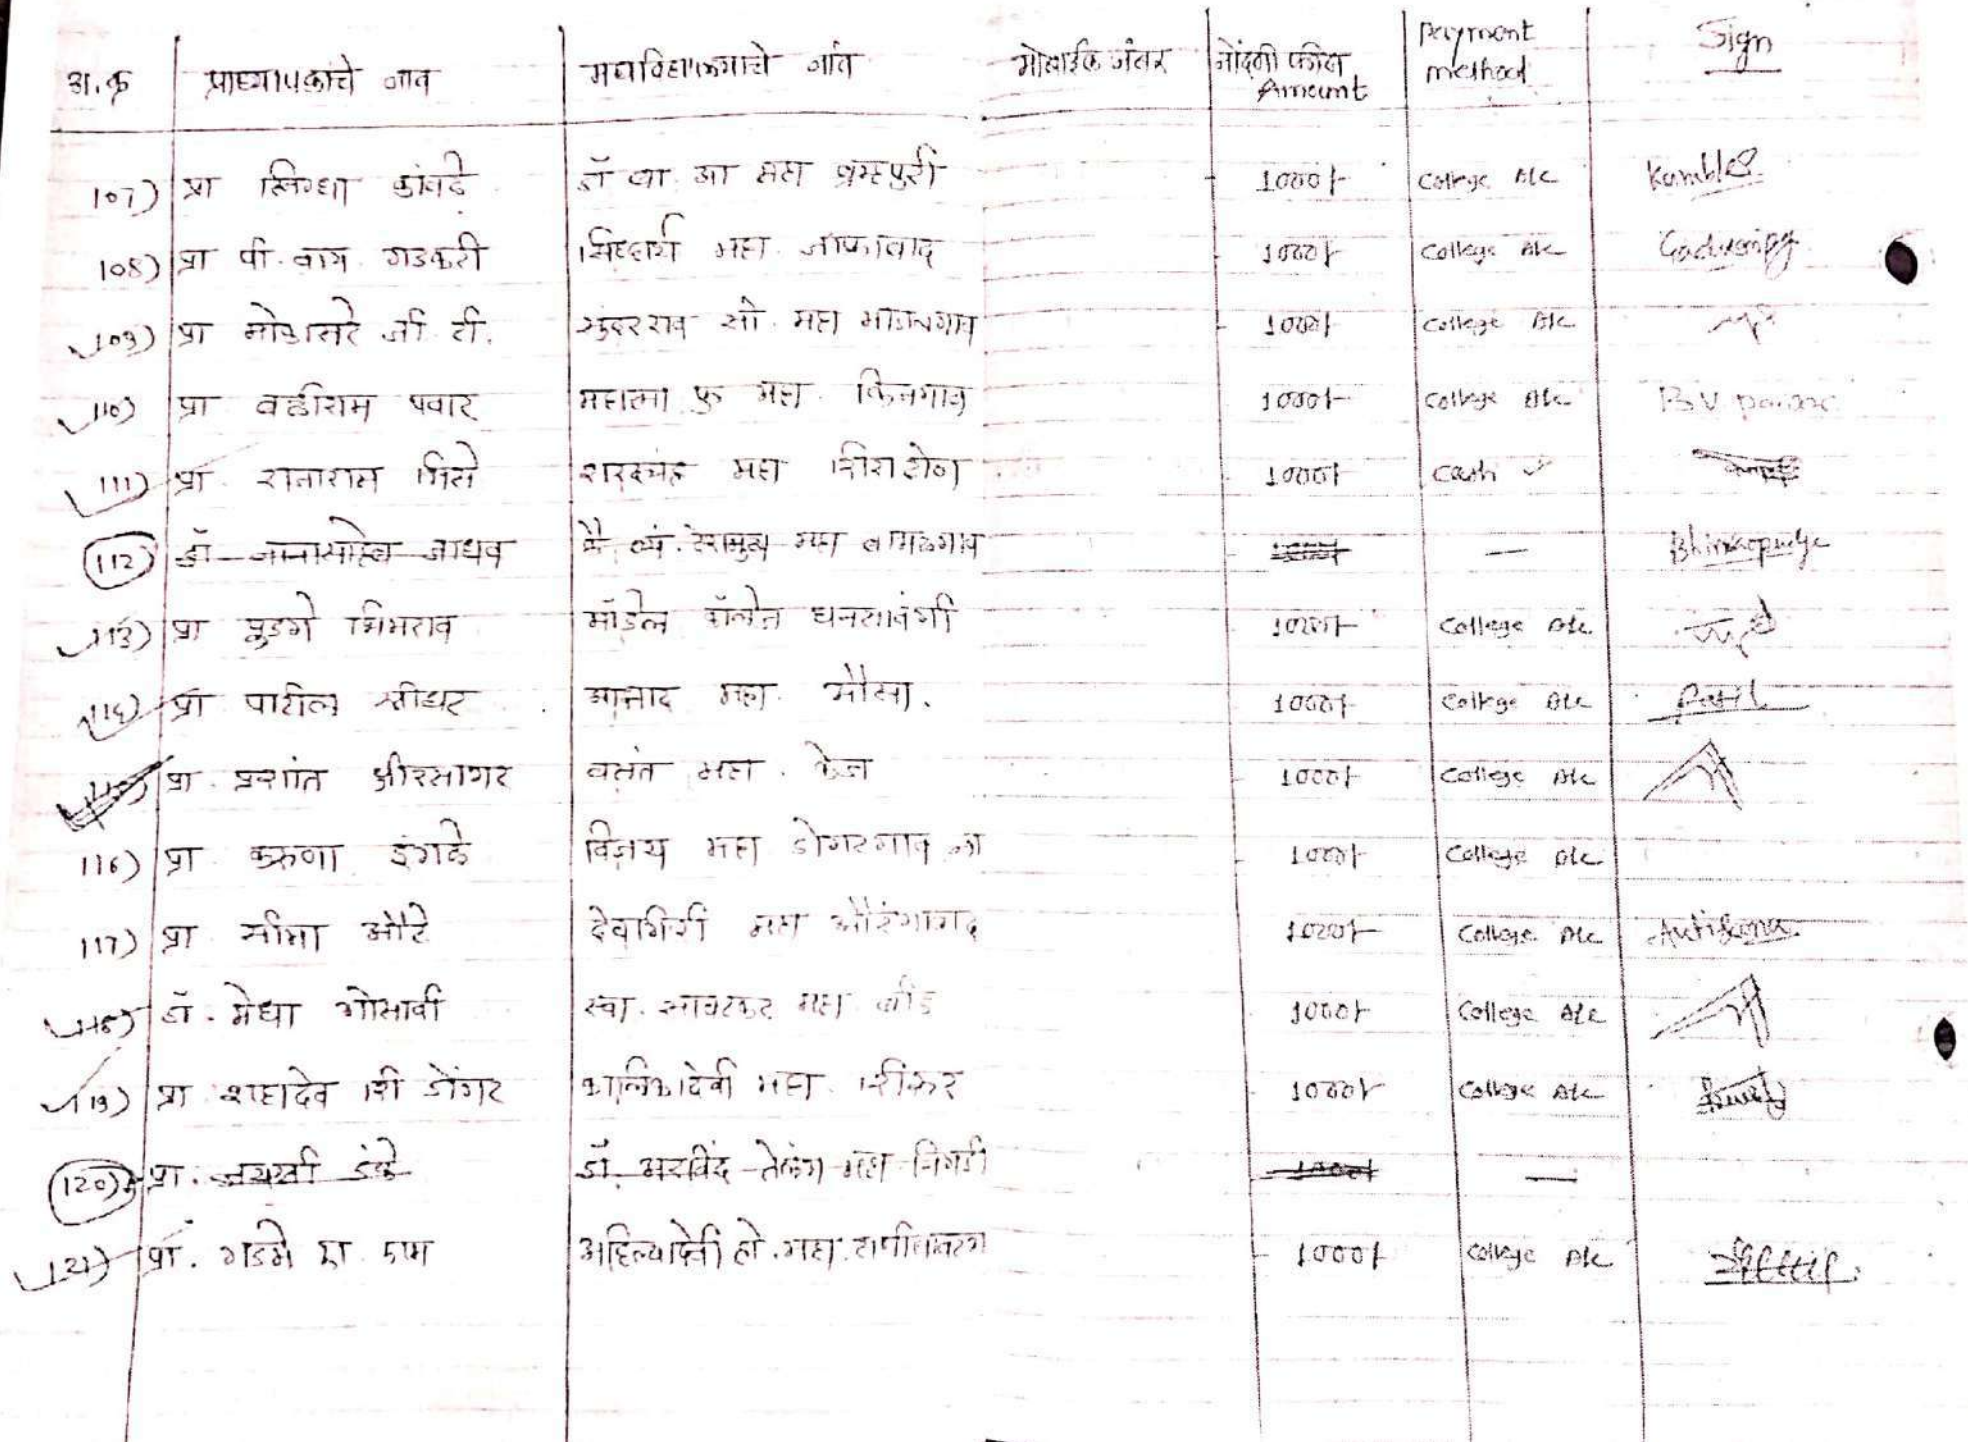 अ.क्र प्राध्यापकाचे नाव महाविद्यालयाचे नांव मोबाईल नंबर नोंदणी फीस Amount Payment method Sign
107) प्रा स्निग्धा कांबळे डॉ बा. आ महा ब्रम्हपुरी 1000/- College A/c Kamble
108) प्रा पी. वाय. गडकरी सिध्दार्थ महा. जाफ्राबाद 1000/- College A/c
109) प्रा मोठासरे जी टी. सुंदरराव सो. महा माजलगाव 1000/- College A/c
110) प्रा बळीराम पवार महात्मा फु महा. किनगाव 1000/- College A/c BV pawar
111) प्रा. राजाराम पिसे शरदचंद्र महा शिराढोण 1000/- Cash ✓
112) डॉ नानासाहेब जाधव कै. व्यं. देशमुख महा बाभळगाव 1000/- —
113) प्रा मुडगे भिमराव मॉडेल कॉलेज घनसावंगी 1000/- College A/c
114) प्रा पाटील श्रीधर आझाद महा. औसा. 1000/- College A/c Patil
115) प्रा. प्रशांत क्षीरसागर वसंत महा. केज 1000/- College A/c
116) प्रा करुणा इंगळे विजय महा डोंगरगाव 1000/- College A/c
117) प्रा सीमा औटे देवगिरी महा औरंगाबाद 1000/- College A/c
118) डॉ. मेधा गोसावी स्वा. सावरकर महा. बीड 1000/- College A/c
119) प्रा शहादेव डोंगर कालिकादेवी महा. शिरूर 1000/- College A/c
120) प्रा. जयश्री डॉ. अरविंद तेलंग महा निगडी 1000/- —
121) प्रा. गडमे एम अहिल्यादेवी हो. महा. 1000/- College A/c